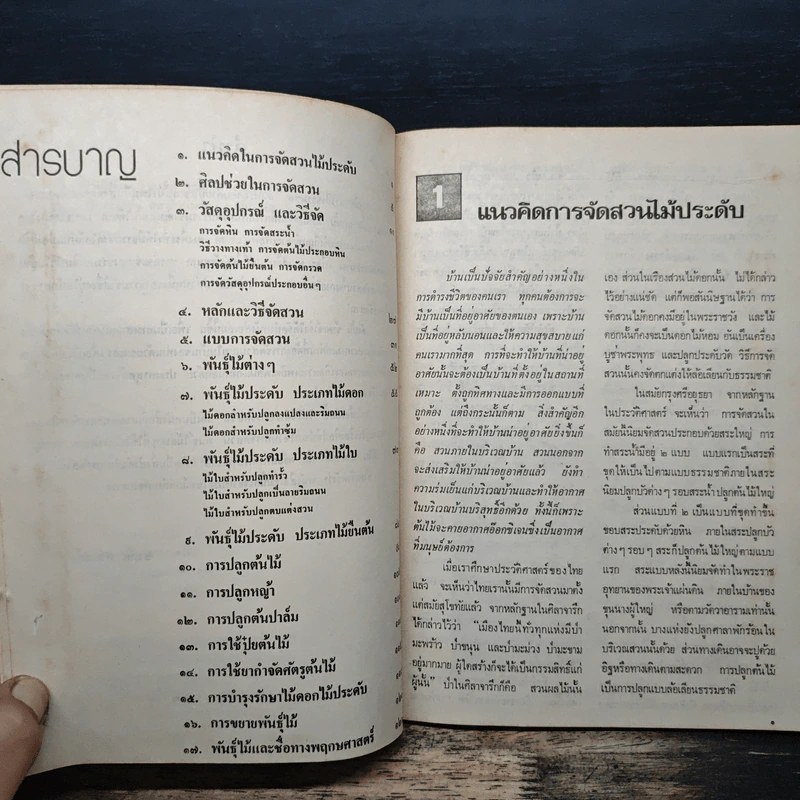 สารบาญ
๑. แนวคิดในการจัดสวนไม้ประดับ
๒. ศิลปช่วยในการจัดสวน
๓. วัสดุอุปกรณ์ และวิธีจัด
การจัดหิน การจัดสระน้ำ
วิธีวางทางเท้า การจัดต้นไม้ประกอบหิน
การจัดต้นไม้ยืนต้น การจัดกรวด
การจัดวัสดุอุปกรณ์ประกอบอื่นๆ
๔. หลักและวิธีจัดสวน ๒๗
๕. แบบการจัดสวน ๓๑
๖. พันธุ์ไม้ต่างๆ ๕๒
๗. พันธุ์ไม้ประดับ ประเภทไม้ดอก ๕๕
ไม้ดอกสำหรับปลูกลงแปลงและริมถนน
ไม้ดอกสำหรับปลูกทำซุ้ม
๘. พันธุ์ไม้ประดับ ประเภทไม้ใบ
ไม้ใบสำหรับปลูกทำรั้ว
ไม้ใบสำหรับปลูกเป็นลายริมถนน
ไม้ใบสำหรับปลูกตบแต่งสวน
๙. พันธุ์ไม้ประดับ ประเภทไม้ยืนต้น
๑๐. การปลูกต้นไม้
๑๑. การปลูกหญ้า
๑๒. การปลูกต้นปาล์ม
๑๓. การใช้ปุ๋ยต้นไม้
๑๔. การใช้ยากำจัดศัตรูต้นไม้
๑๕. การบำรุงรักษาไม้ดอกไม้ประดับ
๑๖. การขยายพันธุ์ไม้
๑๗. พันธุ์ไม้และชื่อทางพฤกษศาสตร์
1 แนวคิดการจัดสวนไม้ประดับ
บ้านเป็นปัจจัยสำคัญอย่างหนึ่งใน
การดำรงชีวิตของคนเรา ทุกคนต้องการจะ
มีบ้านเป็นที่อยู่อาศัยของตนเอง เพราะบ้าน
เป็นที่อยู่หลับนอนและให้ความสุขสบายแก่
คนเรามากที่สุด การที่จะทำให้บ้านที่น่าอยู่
อาศัยนั้นจะต้องเป็นบ้านที่ตั้งอยู่ในสถานที่
เหมาะ ตั้งถูกทิศทางและมีการออกแบบที่
ถูกต้อง แต่ถึงกระนั้นก็ตาม สิ่งสำคัญอีก
อย่างหนึ่งที่จะทำให้บ้านน่าอยู่อาศัยยิ่งขึ้นก็
คือ สวนภายในบริเวณบ้าน สวนนอกจาก
จะส่งเสริมให้บ้านน่าอยู่อาศัยแล้ว ยังทำ
ความร่มเย็นแก่บริเวณบ้านและทำให้อากาศ
ในบริเวณบ้านบริสุทธิ์อีกด้วย ทั้งนี้ก็เพราะ
ต้นไม้จะคายอากาศอ๊อกซิเจนซึ่งเป็นอากาศ
ที่มนุษย์ต้องการ
เมื่อเราศึกษาประวัติศาสตร์ของไทย
แล้ว จะเห็นว่าไทยเรานั้นมีการจัดสวนมาตั้ง
แต่สมัยสุโขทัยแล้ว จากหลักฐานในศิลาจารึก
ได้กล่าวไว้ว่า "เมืองไทยนี้ทั่วทุกแห่งมีป่า
มะพร้าว ป่าขนุน และป่ามะม่วง ป่ามะขาม
อยู่มากมาย ผู้ใดสร้างก็จะได้เป็นกรรมสิทธิ์แก่
ผู้นั้น" ป่าในศิลาจารึกก็คือ สวนผลไม้นั้น
เอง ส่วนในเรื่องสวนไม้ดอกนั้น ไม่ได้กล่าว
ไว้อย่างแน่ชัด แต่ก็พอสันนิษฐานได้ว่า การ
จัดสวนไม้ดอกคงมีอยู่ในพระราชวัง และไม้
ดอกนั้นก็คงจะเป็นดอกไม้หอม อันเป็นเครื่อง
บูชาพระพุทธ และปลูกประดับวัด วิธีการจัด
สวนนั้นคงจัดตกแต่งให้ล้อเลียนกับธรรมชาติ
ในสมัยกรุงศรีอยุธยา จากหลักฐาน
ในประวัติศาสตร์ จะเห็นว่า การจัดสวนใน
สมัยนี้นิยมจัดสวนประกอบด้วยสระใหญ่ การ
ทำสระน้ำมีอยู่ ๒ แบบ แบบแรกเป็นสระที่
ขุดให้เป็นไปตามแบบธรรมชาติภายในสระ
นิยมปลูกบัวต่างๆ รอบสระน้ำปลูกต้นไม้ใหญ่
ส่วนแบบที่ ๒ เป็นแบบที่ขุดทำขึ้น
ขอบสระประดับด้วยหิน ภายในสระปลูกบัว
ต่างๆ รอบๆ สระก็ปลูกต้นไม้ใหญ่ตามแบบ
แรก สระแบบหลังนี้นิยมจัดทำในพระราช
อุทยานของพระเจ้าแผ่นดิน ภายในบ้านของ
ขุนนางผู้ใหญ่ หรือตามวัดวาอารามเท่านั้น
นอกจากนั้น บางแห่งยังปลูกศาลาพักร้อนใน
บริเวณสวนนั้นด้วย ส่วนทางเดินอาจจะปูด้วย
อิฐหรือทางเดินตามสะดวก การปลูกต้นไม้
เป็นการปลูกแบบล้อเลียนธรรมชาติ